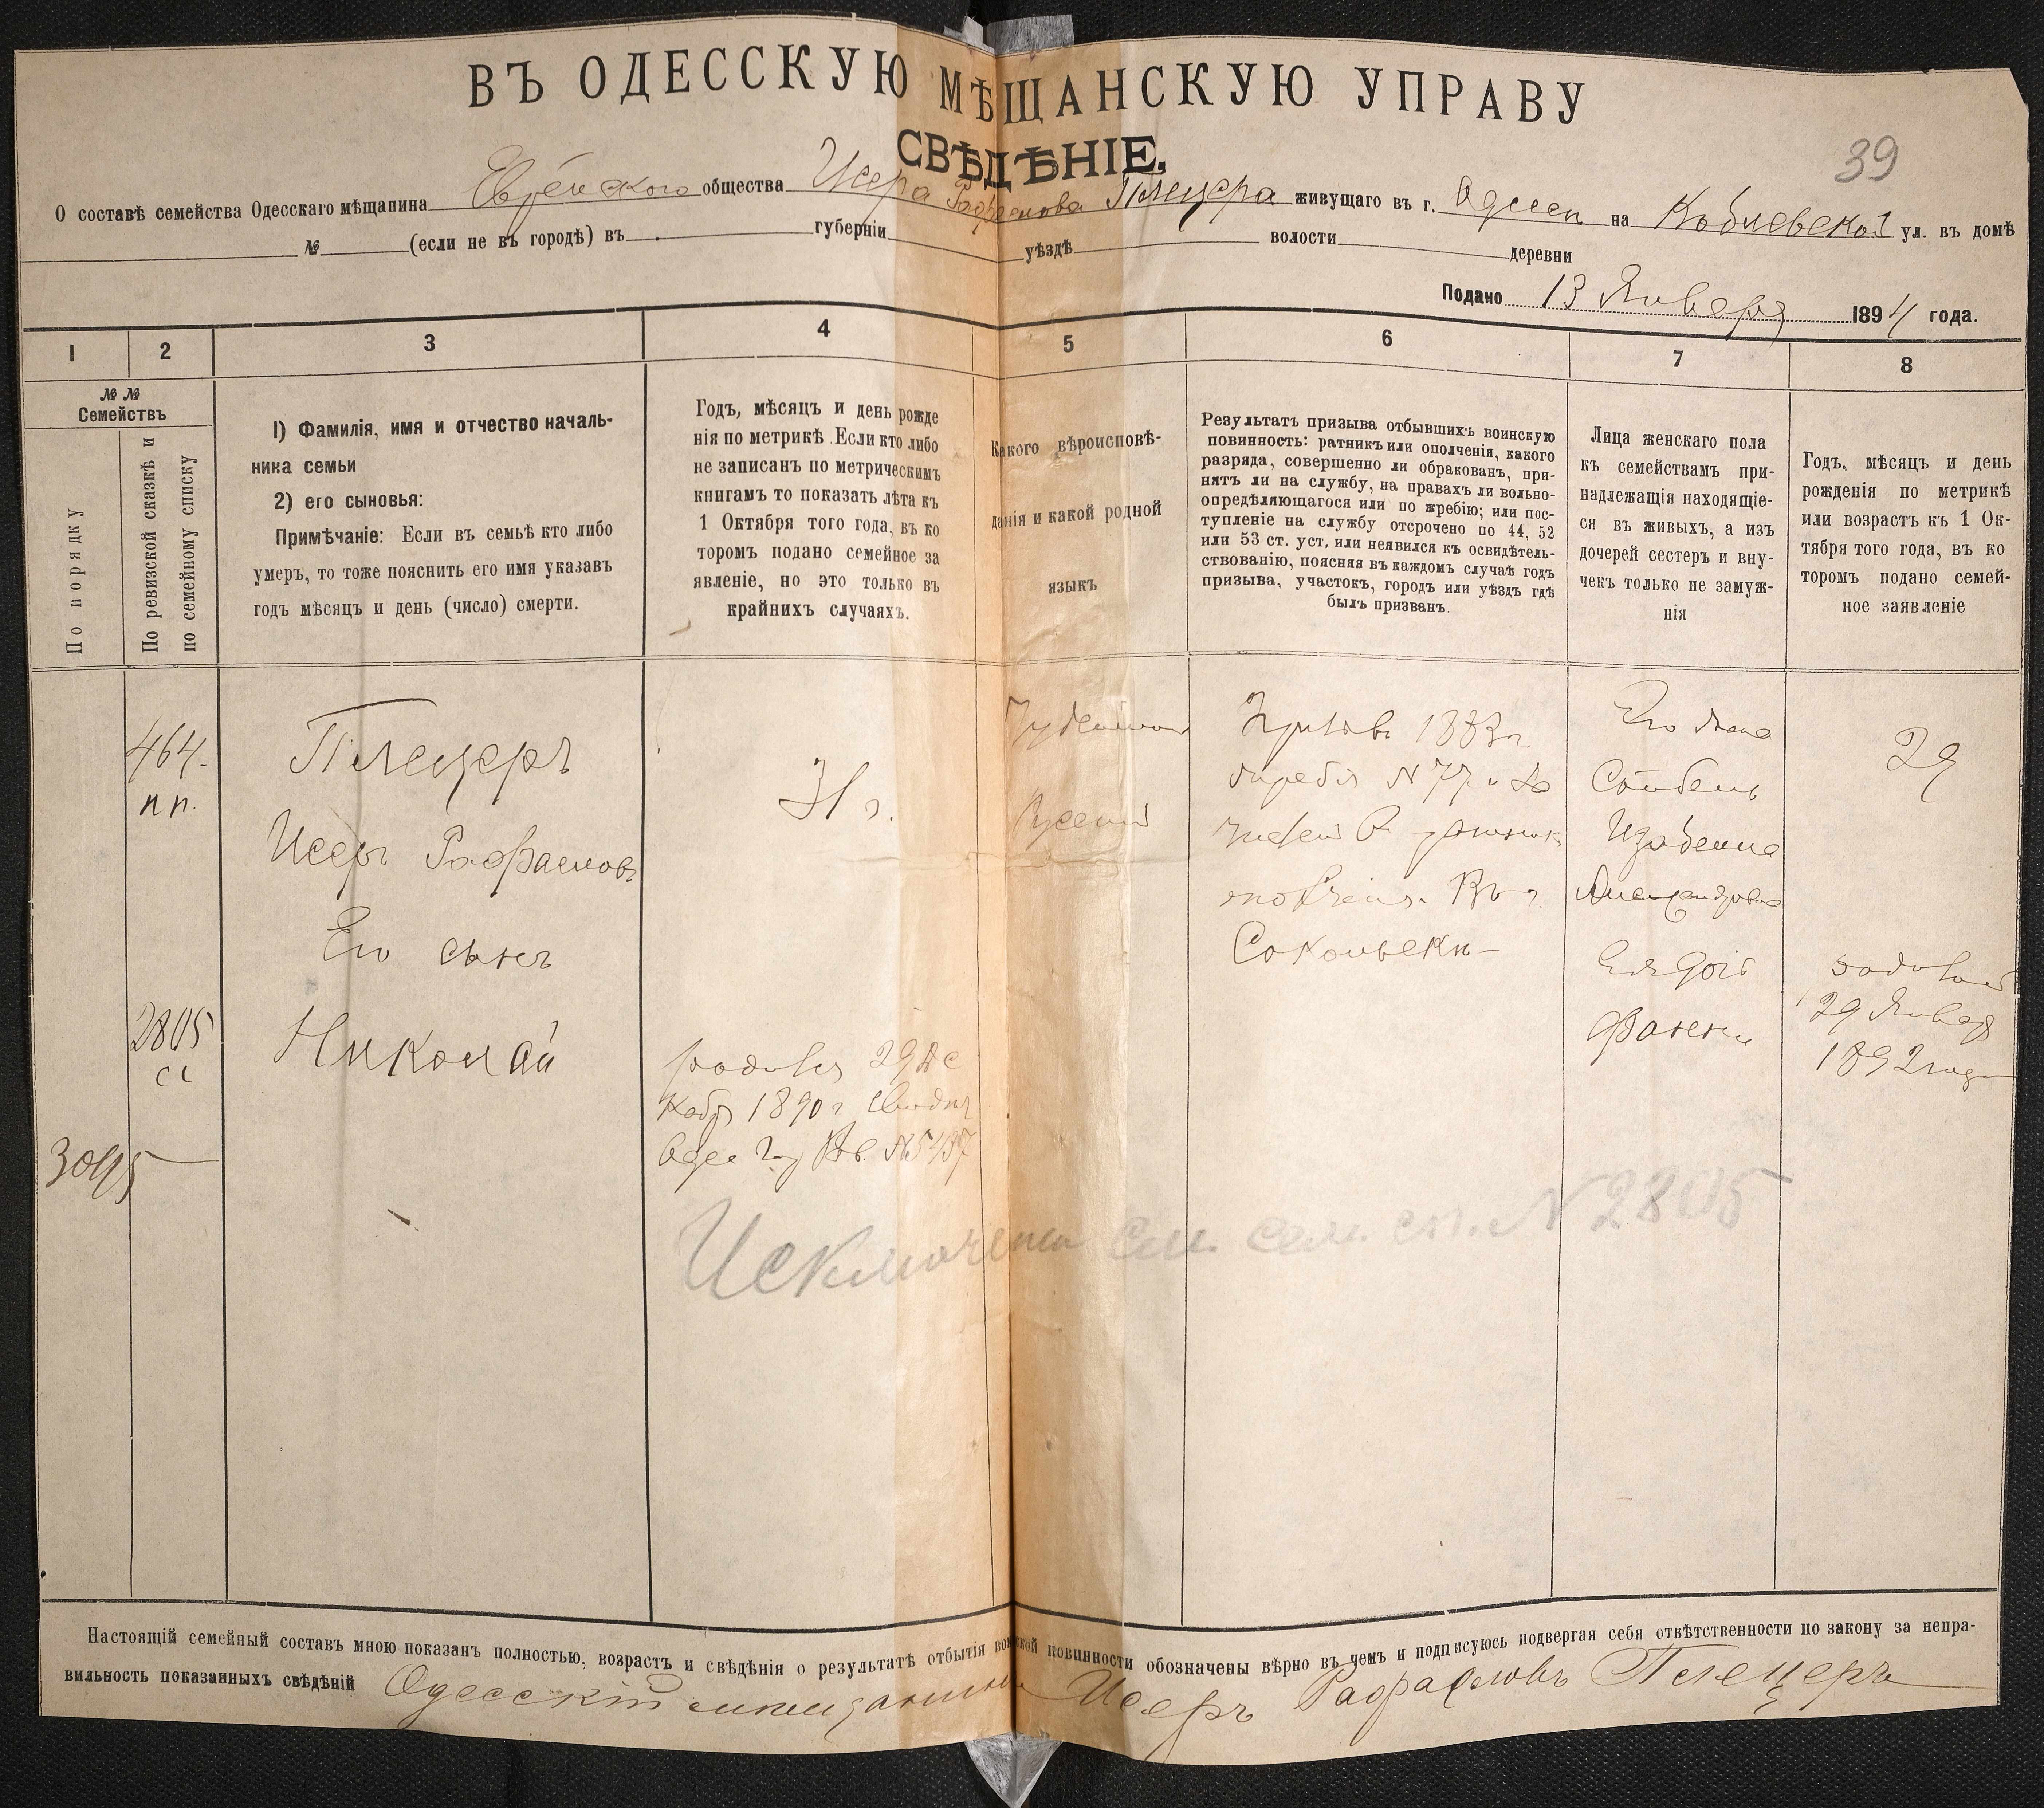 ВЪ ОДЕССКУЮ МѢЩАНСКУЮ УПРАВУ
СВѢДѢНІЕ.
39
О составѣ семейства Одесскаго мѣщанина Еврейскаго общества Исера Рафаилова Плецера живущаго въ г. Одессѣ на Коблевской ул. въ домѣ
№ (если не въ городѣ) въ губерніи уѣздѣ волости деревни
Подано 13 Января 1894 года.
1 2 3 4 5 6 7 8
№ №
Семействъ
По порядку
По ревизской сказкѣ и
по семейному списку
1) Фамилія, имя и отчество началь-
ника семьи
2) его сыновья:
Примѣчаніе: Если въ семьѣ кто либо
умеръ, то тоже пояснить его имя указавъ
годъ мѣсяцъ и день (число) смерти.
Годъ, мѣсяцъ и день рожде
нія по метрикѣ. Если кто либо
не записанъ по метрическимъ
книгамъ то показать лѣта къ
1 Октября того года, въ ко
торомъ подано семейное за
явленіе, но это только въ
крайнихъ случаяхъ.
Какого вѣроисповѣ-
данія и какой родной
языкъ
Результатъ призыва отбывшихъ воинскую
повинность: ратникъ или ополченія, какого
разряда, совершенно ли обракованъ, при-
нятъ ли на службу, на правахъ ли вольно-
опредѣляющагося или по жребію; или пос-
тупленіе на службу отсрочено по 44, 52
или 53 ст. уст, или неявился къ освидѣтель-
ствованію, поясняя въ каждомъ случаѣ годъ
призыва, участокъ, городъ или уѣздъ гдѣ
былъ призванъ.
Лица женскаго пола
къ семействамъ при-
надлежащія находящіе-
ся въ живыхъ, а изъ
дочерей сестеръ и вну-
чекъ только не замуж-
нія
Годъ, мѣсяцъ и день
рожденія по метрикѣ
или возрастъ къ 1 Ок-
тября того года, въ ко
торомъ подано семей-
ное заявленіе
464.
пп.
2805
сс
3095
Плецеръ
Исеръ Рафаиловъ
Его сынъ
Николай
31 г.
родился 29 Де
кабря 1890 г
№5437
Іудейской
Русскій
1883 г.
жребія № 77
Въ г.
Сокольски
Его жена
Изабелла
Александровна
Фанни
29
родилась
29 Января
1892 года
Исключенъ см. сем. сп. N 2805
Настоящій семейный составъ мною показанъ полностью, возрастъ и свѣдѣнія о результатѣ отбытія воинской повинности обозначены вѣрно въ чемъ и подписуюсь подвергая себя отвѣтственности по закону за непра-
вильность показанныхъ свѣдѣній Одесскій мѣщанинъ Исеръ Рафаиловъ Плецеръ